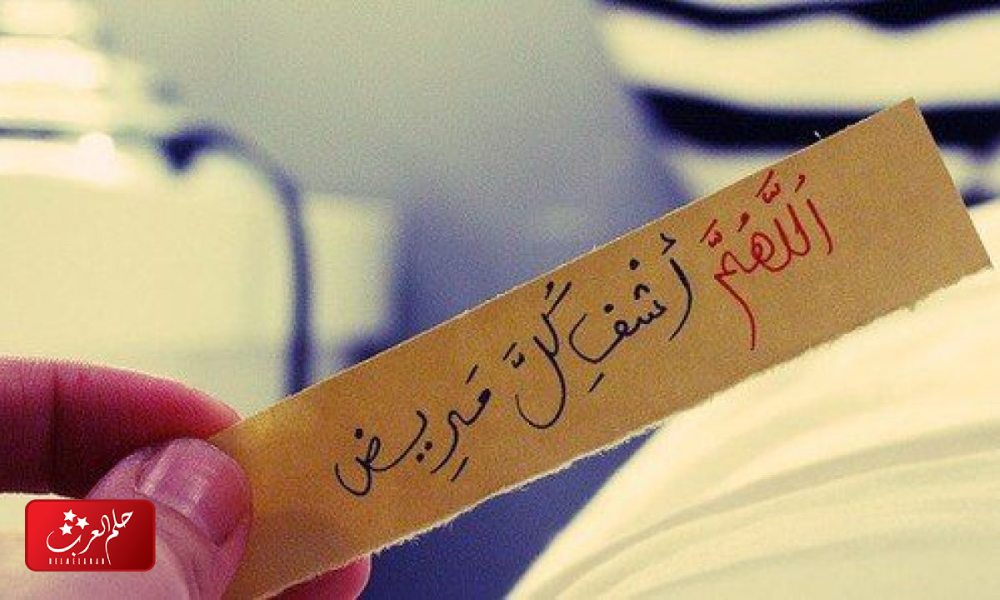 اَللَّهُمَّ أشفِ كُلَّ مَرِيض
حلم العرب
HELMELARAB